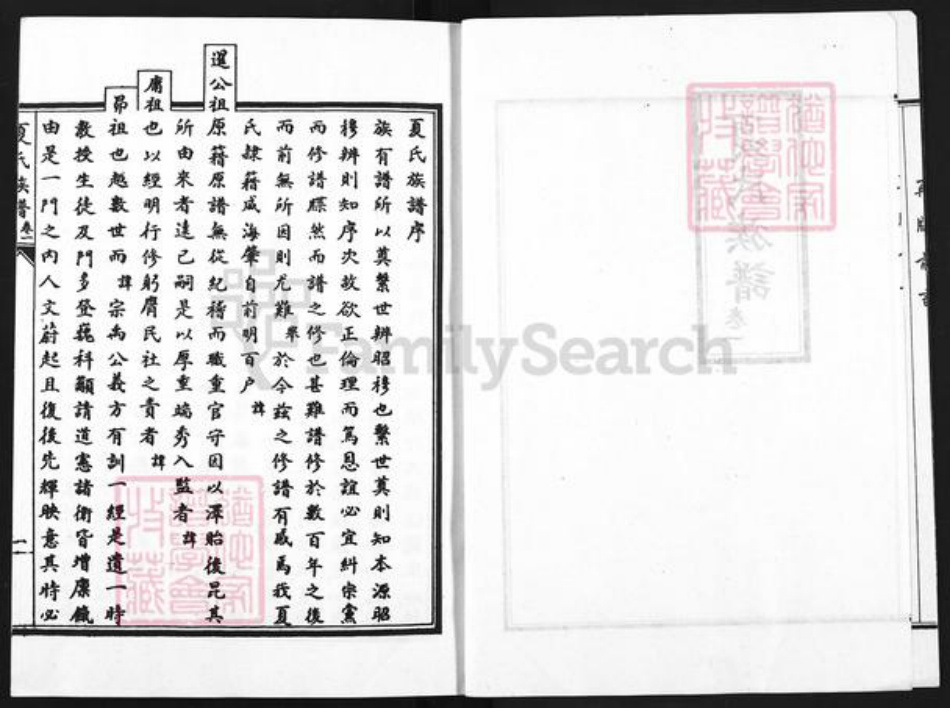 夏氏族譜序
族有譜所以奠繫世辨昭穆也繫世奠則知本源昭
穆辨則知序次故欲正倫理而篤恩誼必宜糾宗黨
而修譜牒然而譜之修也甚難譜修於數百年之後
而前無所因則尤難舉於今茲之修譜有感焉我夏
氏隸籍威海肇自前明百戶諱
暹公祖原籍原譜無從紀稽而職重官守因以澤貽後昆其
所由來者遠已嗣是以厚重端秀入監者諱
庸祖也以經明行修躬膺民社之責者諱
昴祖也越數世而諱宗禹公義方有訓一經是遺一時
教授生徒及門多登巍科顯請道憲諸衛皆增廩餼
由是一門之內人文蔚起且復後先輝映意其時必
夏氏族譜 卷一
一
族譜 卷一
收藏
FamilySearch